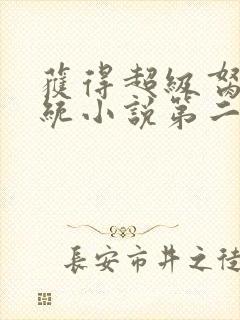 獲得超級努
統小說第二
長安市井之徒